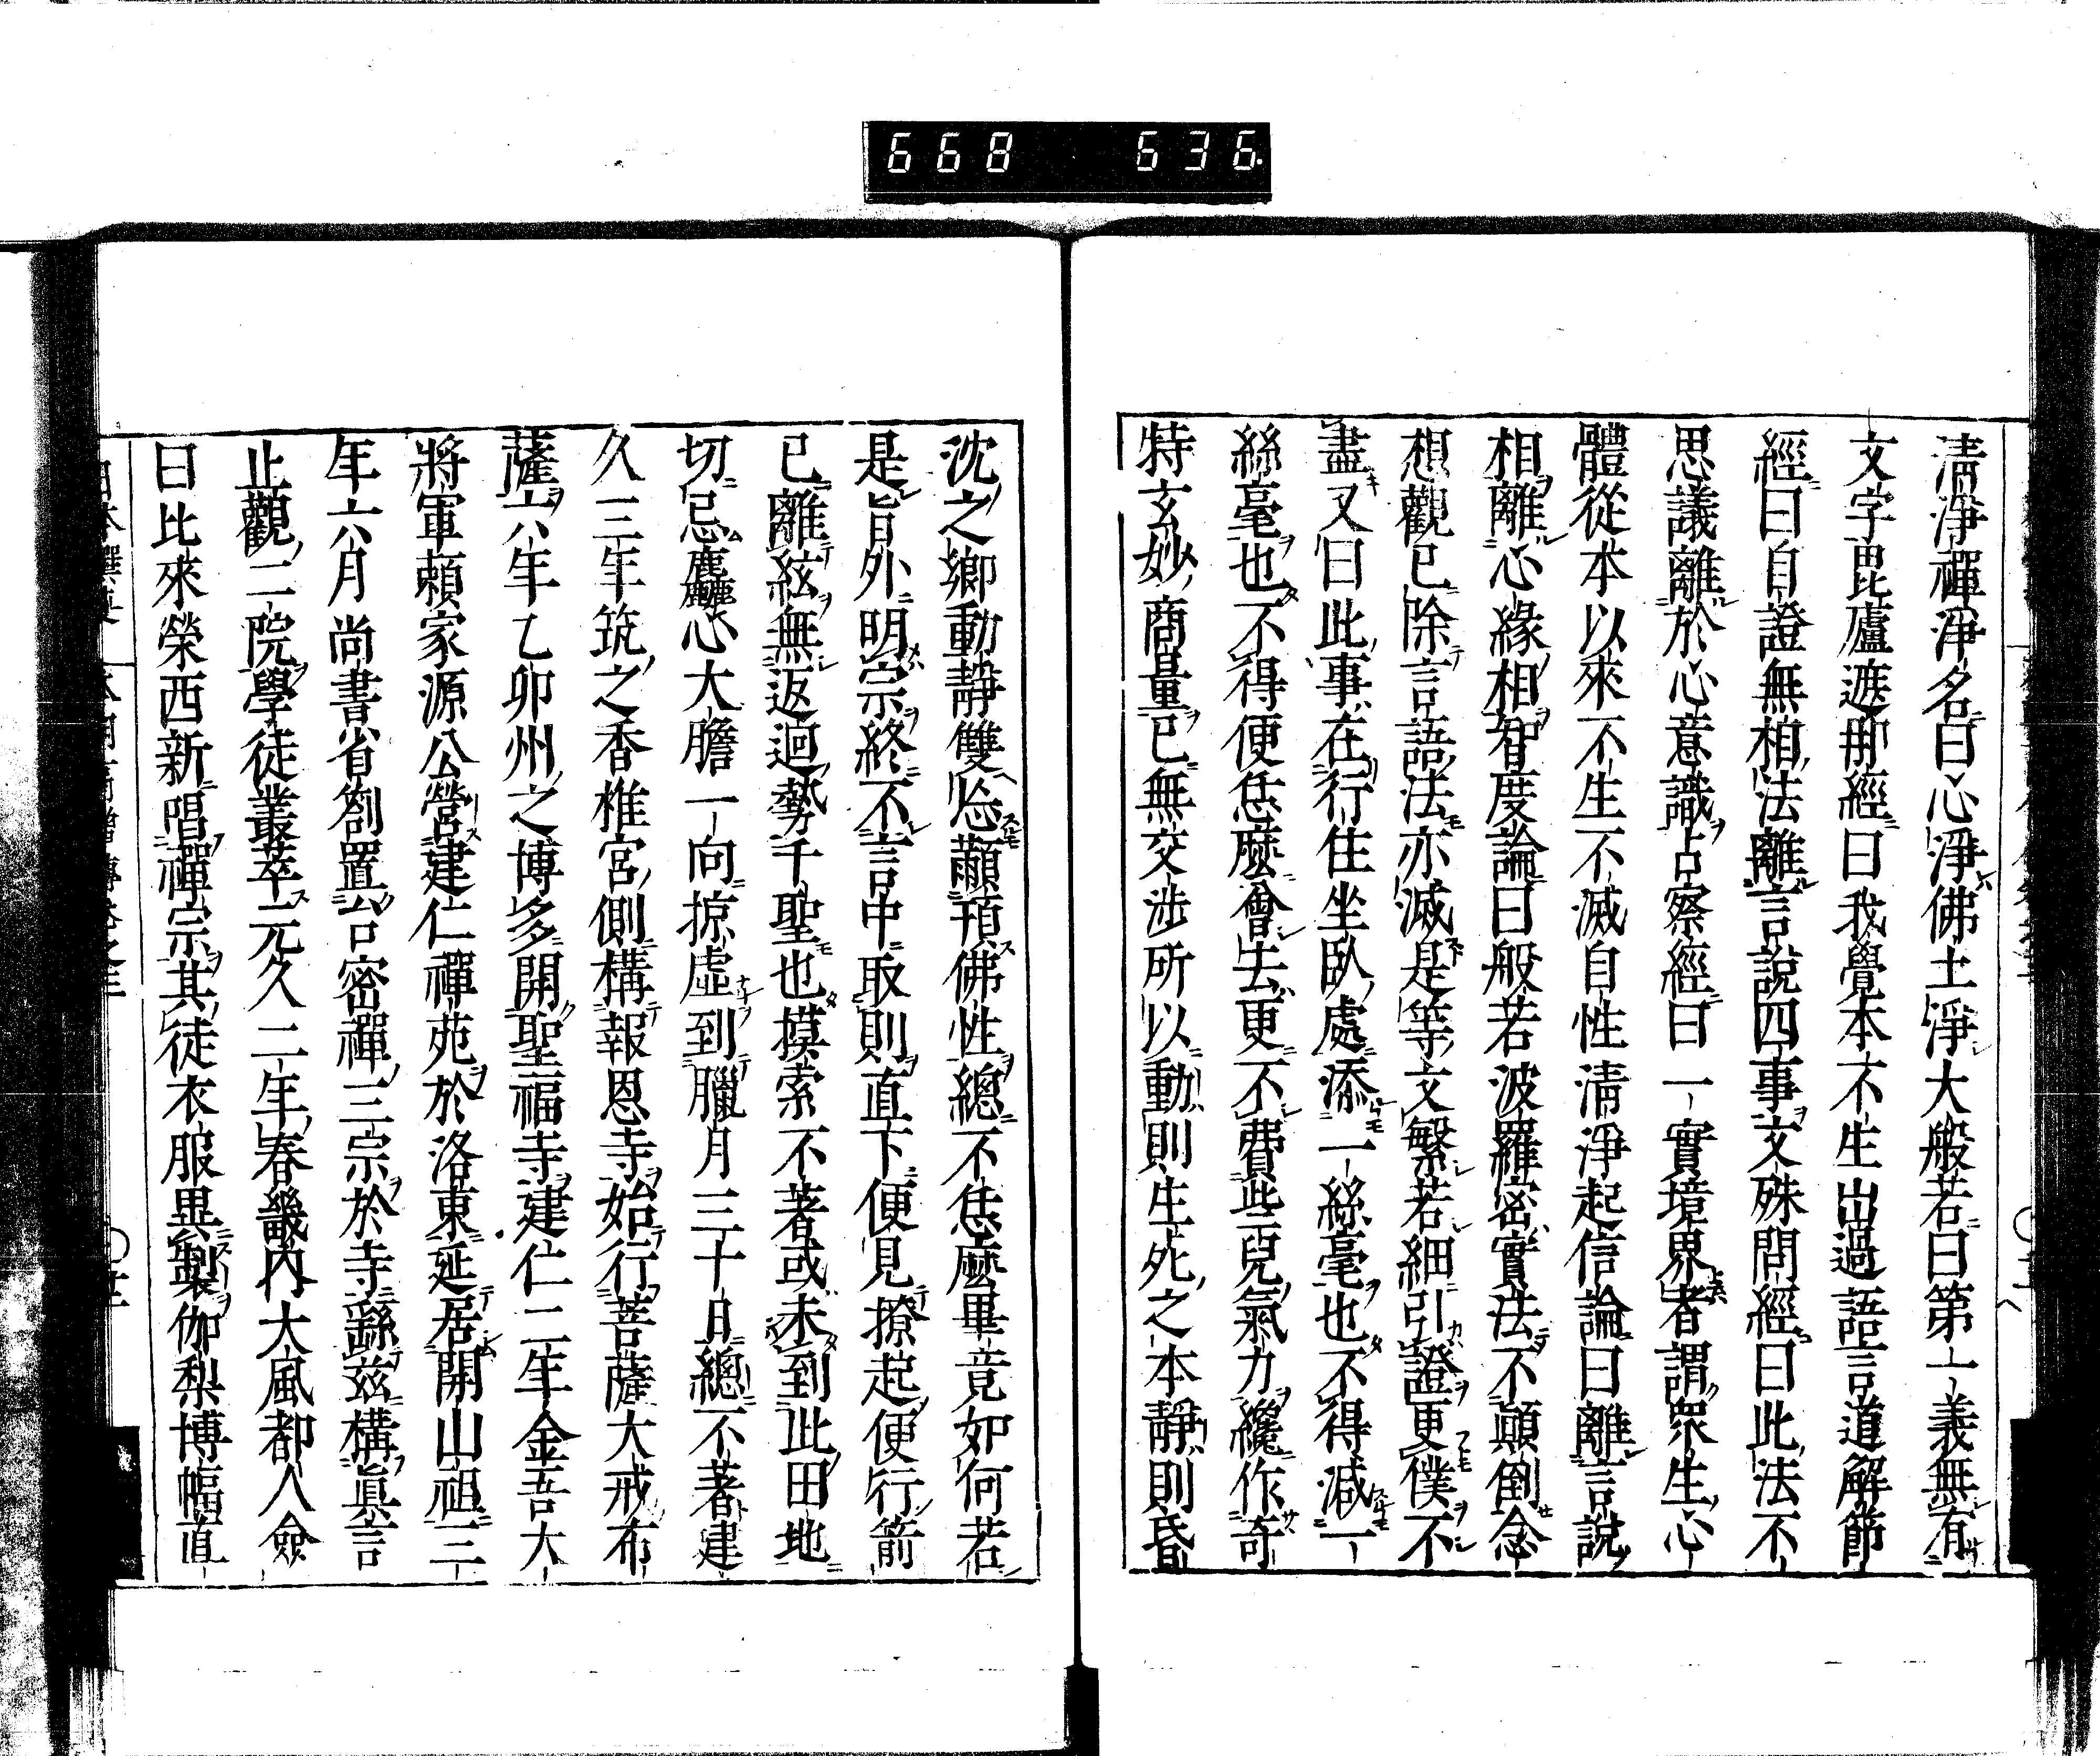 668 636
清淨禪淨名曰心淨佛土淨大般若曰第一義無有
文字毘盧遮那經曰我覺本不生出過語言道解節
經曰自證無相法離言說四事文殊問經曰此法不
思議離於心意識占察經曰一實境界者謂衆生心
體從本以來不生不滅自性清淨起信論曰離言說
相離心緣相智度論曰般若波羅密實法不顛倒念
想觀已除言語法亦滅是等文繁若細引證更僕不
盡又曰此事在行住坐臥處添一絲毫也不得減一
絲毫也不得便恁麼會去更不費些兒氣力纔作奇
特玄妙商量已無交涉所以動則生死之本靜則昏
沈之鄉動靜雙忘顢頇佛性總不恁麼畢竟如何若
是旨外明宗終不言中取則直下便見撩起便行箭
已離絃無返迴勢千聖也摸索不著或未到此田地
切忌麤心大膽一向掠虛到臘月三十日總不著建
久三年筑之香椎宮側構報恩寺始行菩薩大戒布
薩六年乙卯州之博多開聖福寺建仁二年金吾大
將軍賴家源公營建仁禪苑於洛東延居開山祖三
年六月尚書省劄置台密禪三宗於寺繇玆構眞言
止觀二院學徒叢萃元久二年春畿内大風都人僉
曰比來榮西新唱禪宗其徒衣服異製伽梨博幅直